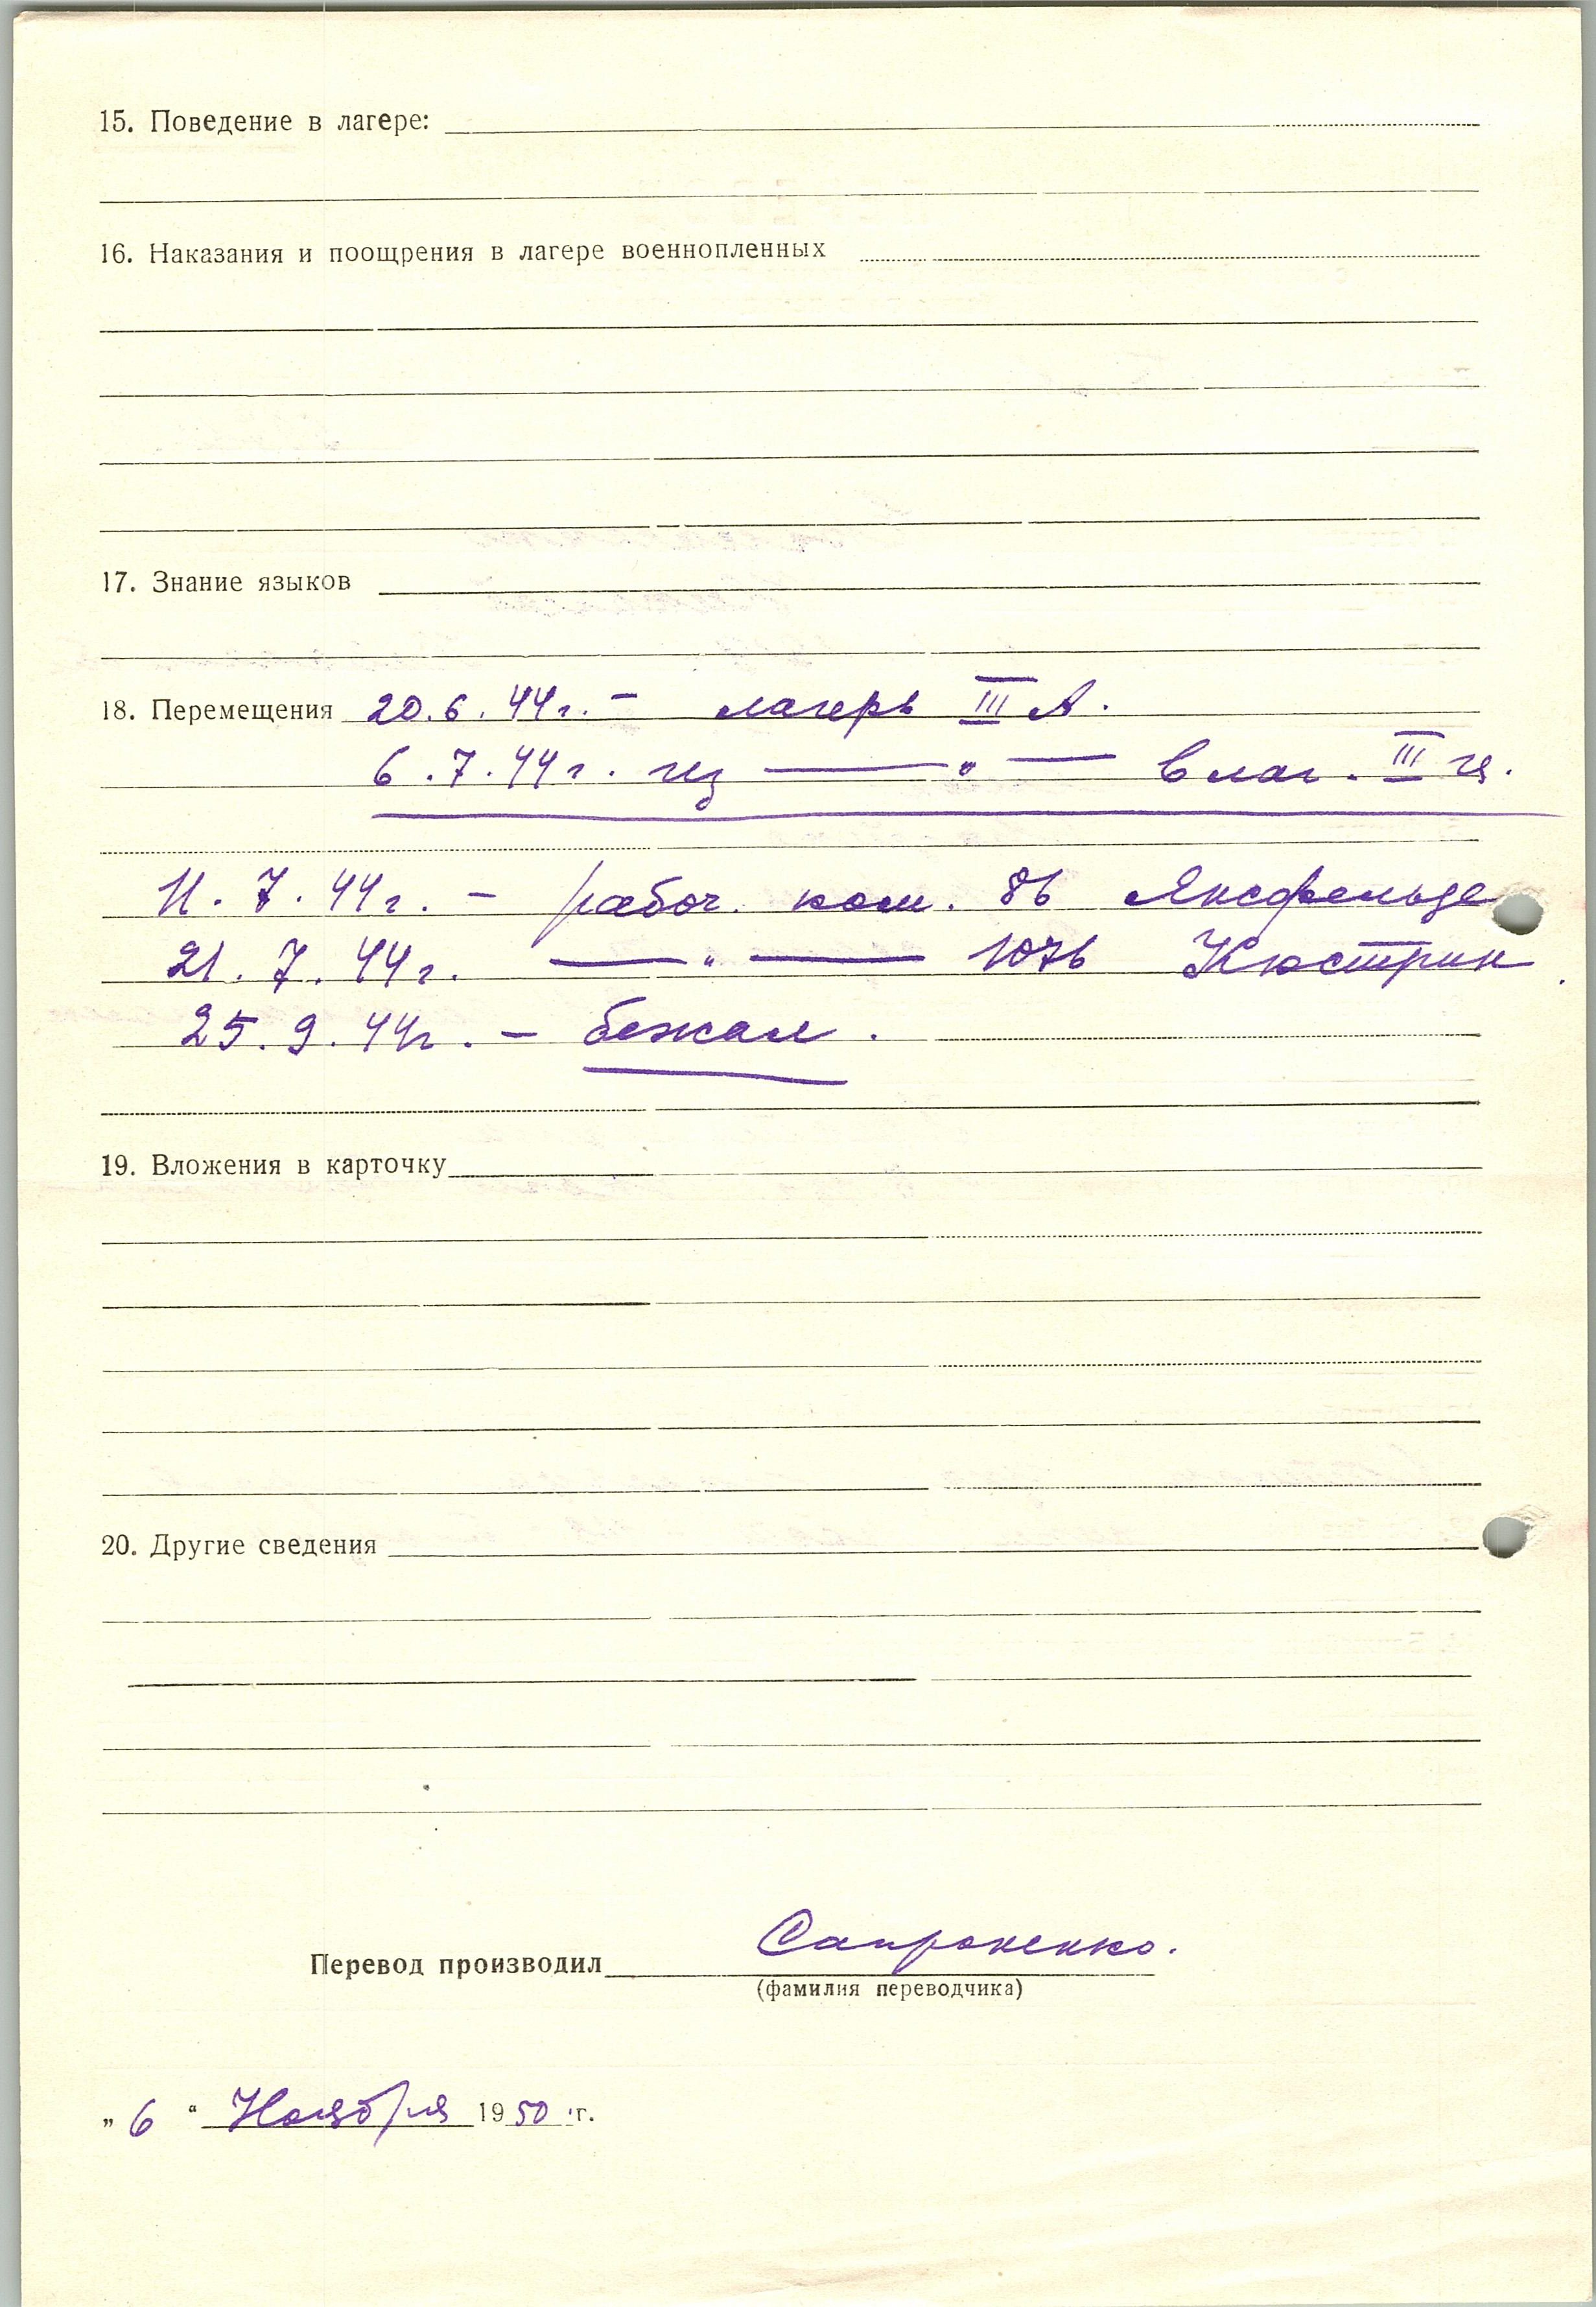 15. Поведение в лагере:
16. Наказания и поощрения в лагере военнопленных
17. Знание языков
18. Перемещения 20.6.44г. – лагерь III А.
6.7.44г. из — " — в лаг. III ц.
11.7.44г. – рабоч. ком. 86 Яксфельде
21.7.44г. — " — 1076 Кюстрин.
25.9.44г. – бежал.
19. Вложения в карточку
20. Другие сведения
Сапроненко.
Перевод производил
(фамилия переводчика)
„ 6 “ Ноября 1950 г.